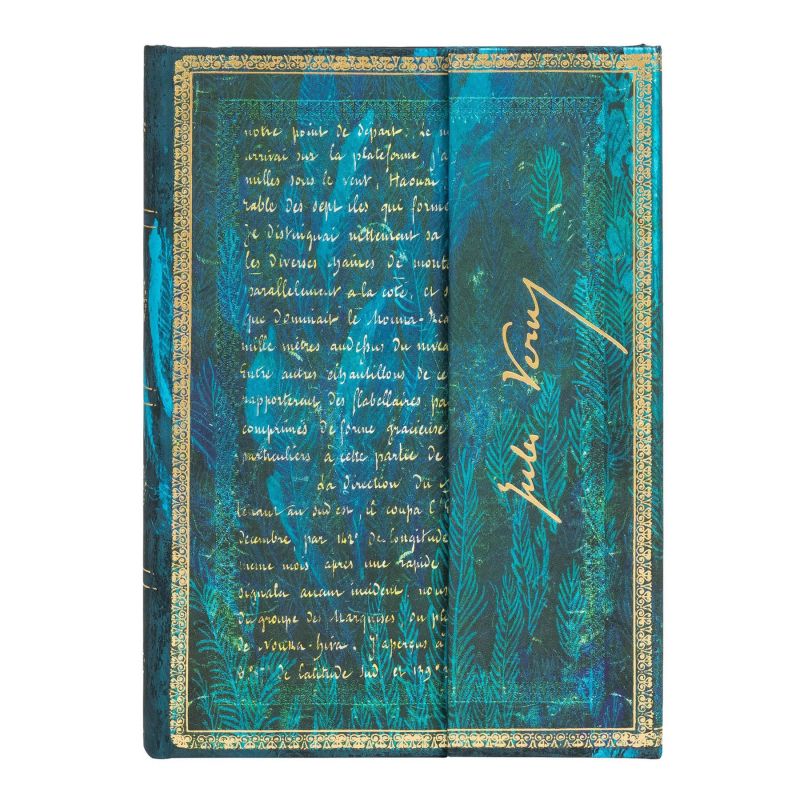 notre point de départ. Le m
arrivai sur la plateforme j'a
milles sous le vent, Haouai,
rable des sept iles qui forme
je distinguai nettement sa
les diverses chaines de monta
parallelement a la cote, et s
que dominait le Mouna-Rea
mille mètres audessus du nivea
Entre autres échantillons de ce
rapporterent des flabellaires pa
comprimés de forme gracieuse
particuliers à cette partie de
La direction du
tenant au sud est, il coupa l'E
decembre, par 142° de longitude
meme mois après une rapide
signala aucun incident, nous
du groupe des Marquises ou pl
de Nouka-hiva. J'aperçus a
de latitude sud et 139°
Jules Verne